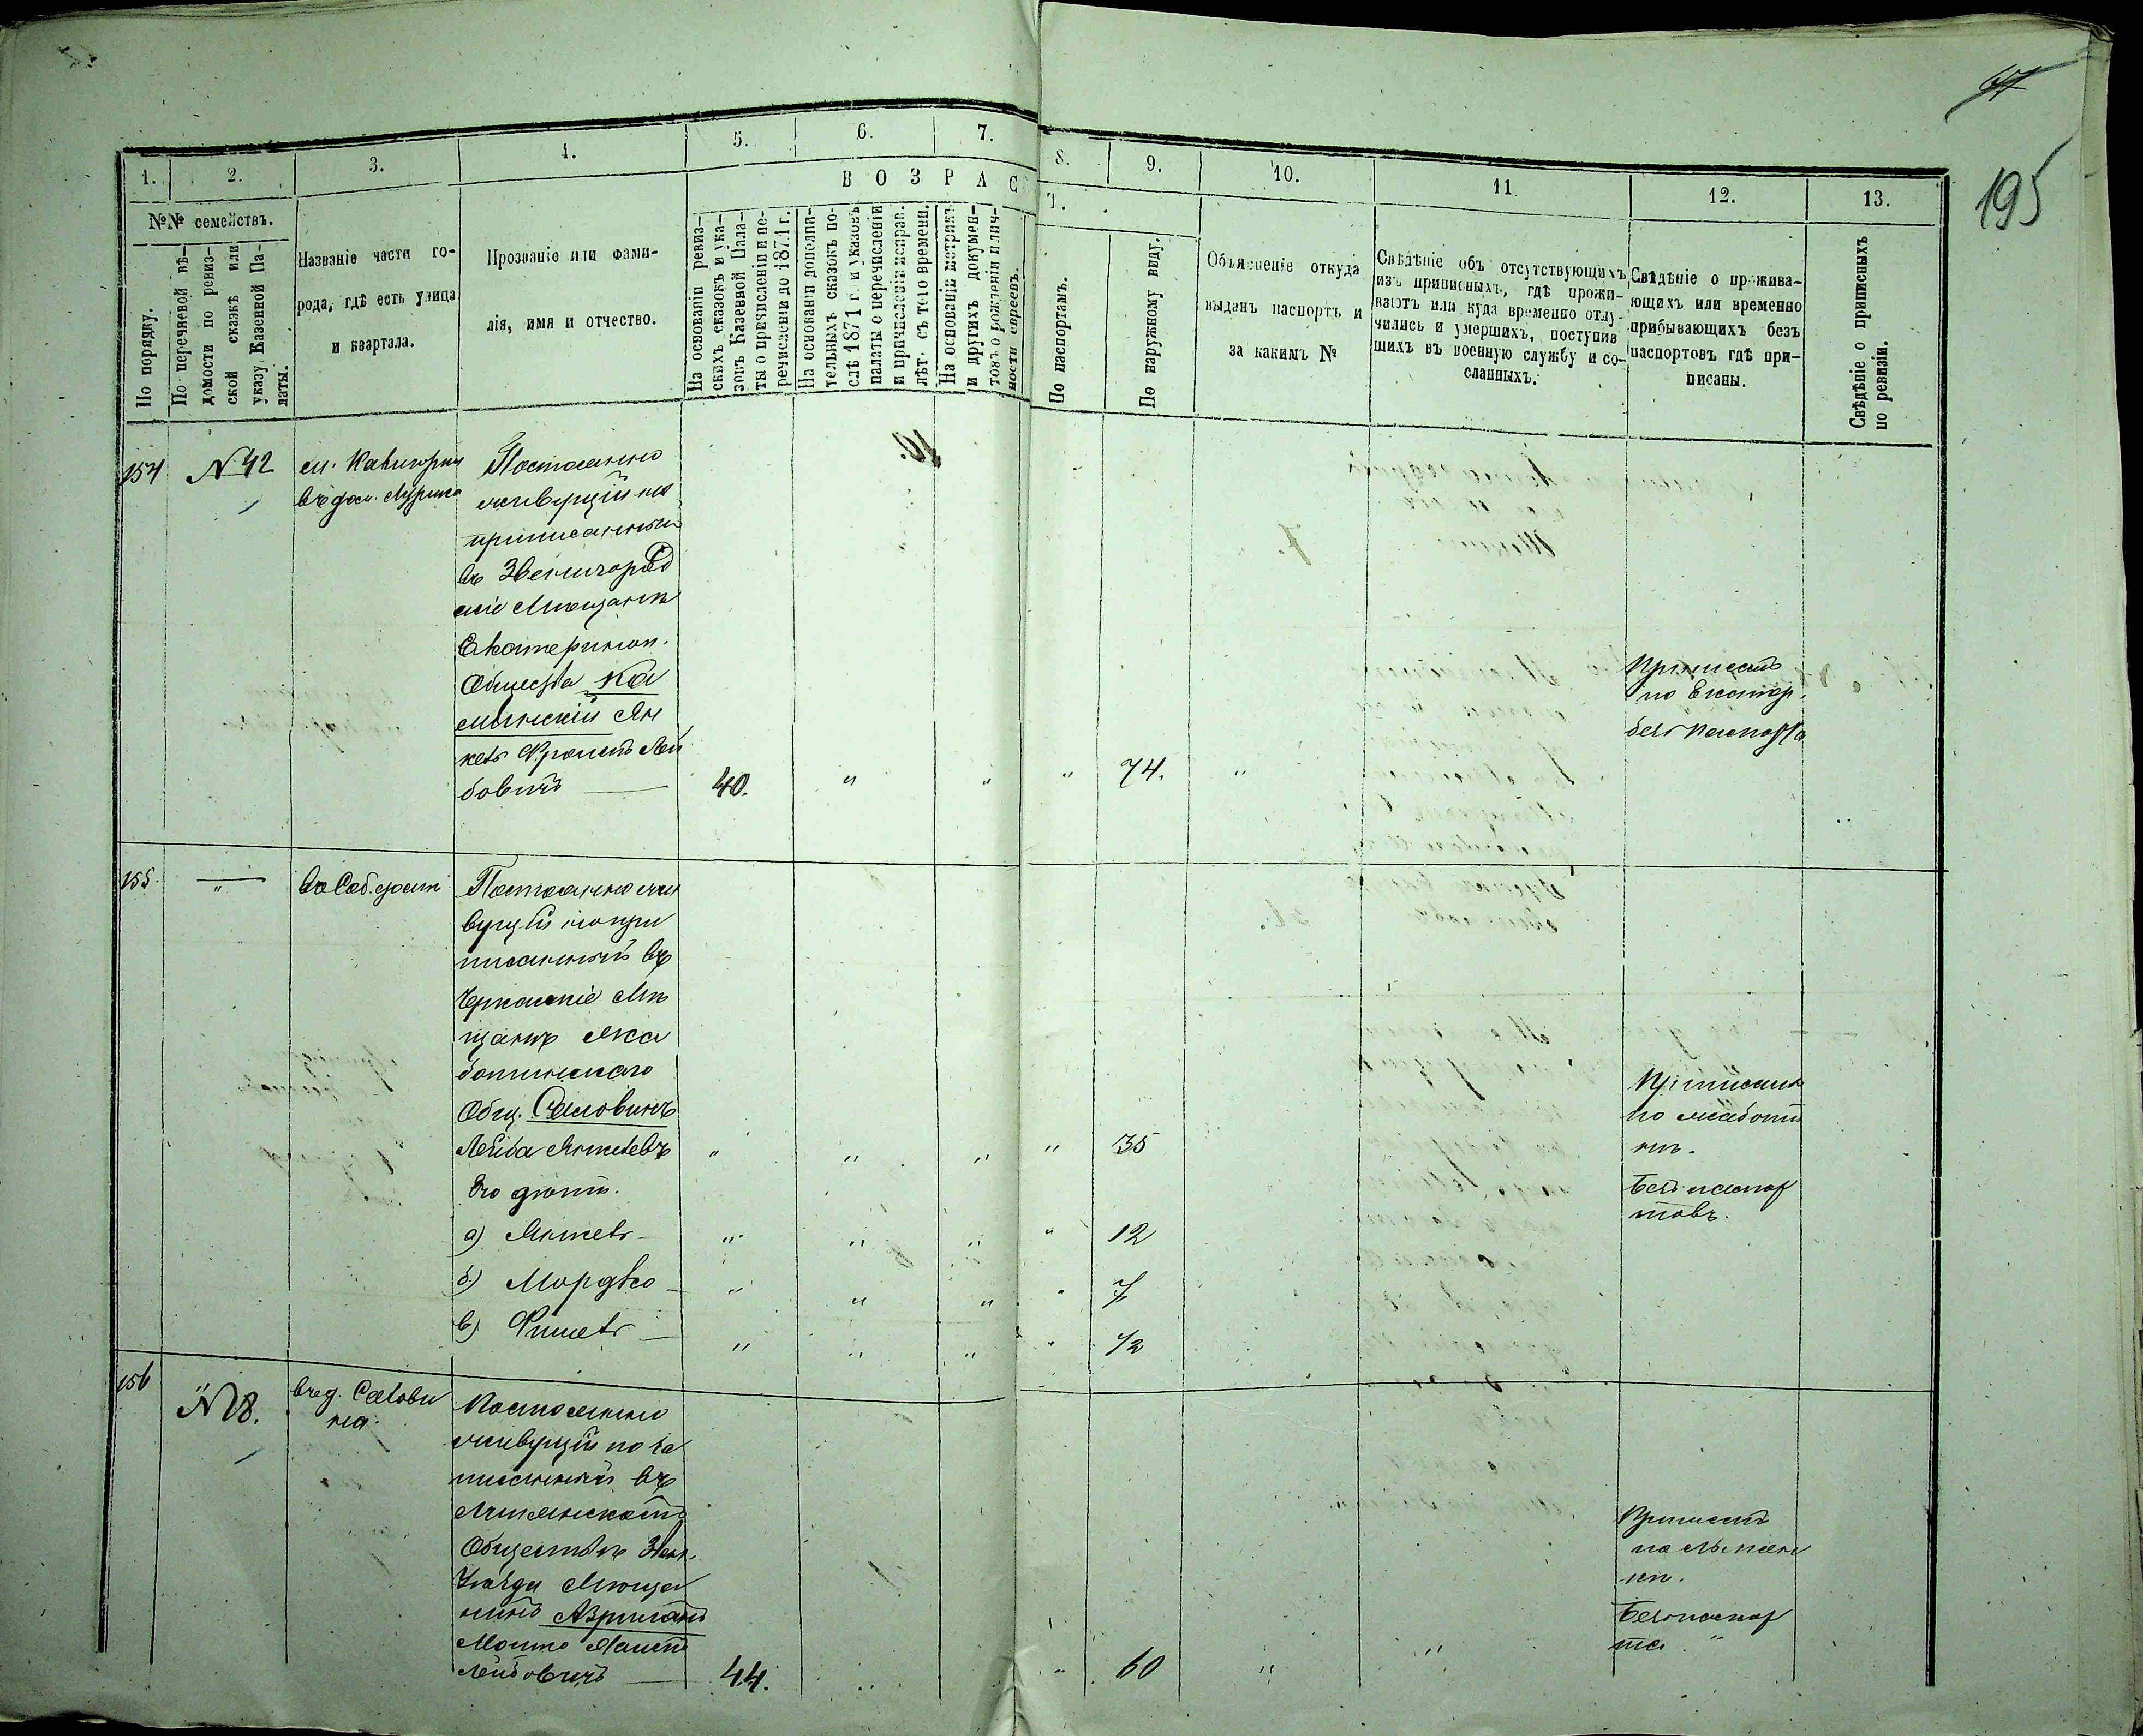 67
195
1.
2.
3.
4.
5.
6.
7.
8.
9.
10.
11
12.
13.
№№ семействъ.
По порядку.
По перечневой вѣ-
домости по ревиз-
ской сказкѣ или
указу Казенной Па-
латы.
Названіе части го-
рода, гдѣ есть улица
и квартала.
Прозваніе или фами-
лія, имя и отчество.
ВОЗРАС
Т.
На основаніи ревиз-
скихъ сказокъ и ука-
зовъ Казенной Пала-
ты о пречисленіи и пе-
речисленіи до 1871 г.
На основаніи дополни-
тельныхъ сказокъ по-
слѣ 1871 г. и указовъ
палаты о перечисленіи
и причисленіи исправ.
лѣт. съ того времени.
На основаніи метрикъ
и другихъ докумен-
товъ о рожденіи и лич-
ности евреевъ.
По паспортамъ.
По наружному виду.
Объясненіе откуда
выданъ паспортъ и
за какимъ №
Свѣдѣніе объ отсутствующихъ
изъ приписныхъ, гдѣ прожи-
ваютъ или куда временно отлу-
чились и умершихъ, поступив
шихъ въ военную службу и со-
сланныхъ.
Свѣдѣніе о прожива-
ющихъ или временно
прибывающихъ безъ
паспортовъ гдѣ при-
писаны.
Свѣдѣніе о приписныхъ
по ревизіи.
154
№ 42
м. Кавигорни
въ дом.
Постоянно
живущій но
приписанный
въ Звенигород
скіе Мещане
Екатериноп.
Общества Ка
минскій Ян
кель Фроимъ Лей
бовичъ
40.
"
"
"
74.
"
Приписанъ
по Екатер.
безъ паспорта
155.
"
въ Соб. домѣ
Постоянно жи
вущій но при
писанный въ
Черкаскіе Мѣ
щане Жа
ботинскаго
Общ. Саловинъ
Лейба Янкелевъ
"
"
"
"
35
Его дѣти.
а) Янкель
"
"
"
"
12
б) Мордко
"
"
"
"
7
в) Фишель
"
"
"
"
1/2
Приписанъ
по Жаботи
нѣ.
Безъ паспор
товъ.
156
№ 8.
въ д. Салови
на
Постоянно
живущій но за
писанный въ
Общество Звен.
Уѣзда Мѣща
нинъ Азриланъ
Мошко
Лейбовичъ
44.
"
"
60
"
"
Приписанъ
по Лысян
кѣ.
Безъ паспор
та. "